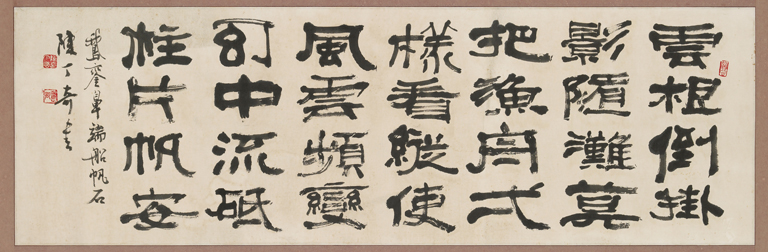 雲根倒掛
影隨灘莫
把漁舟弌
樣看縱使
風雲頻變
幻中流砥
柱片帆安
鵞鑾鼻端船帆石
陳丁奇書